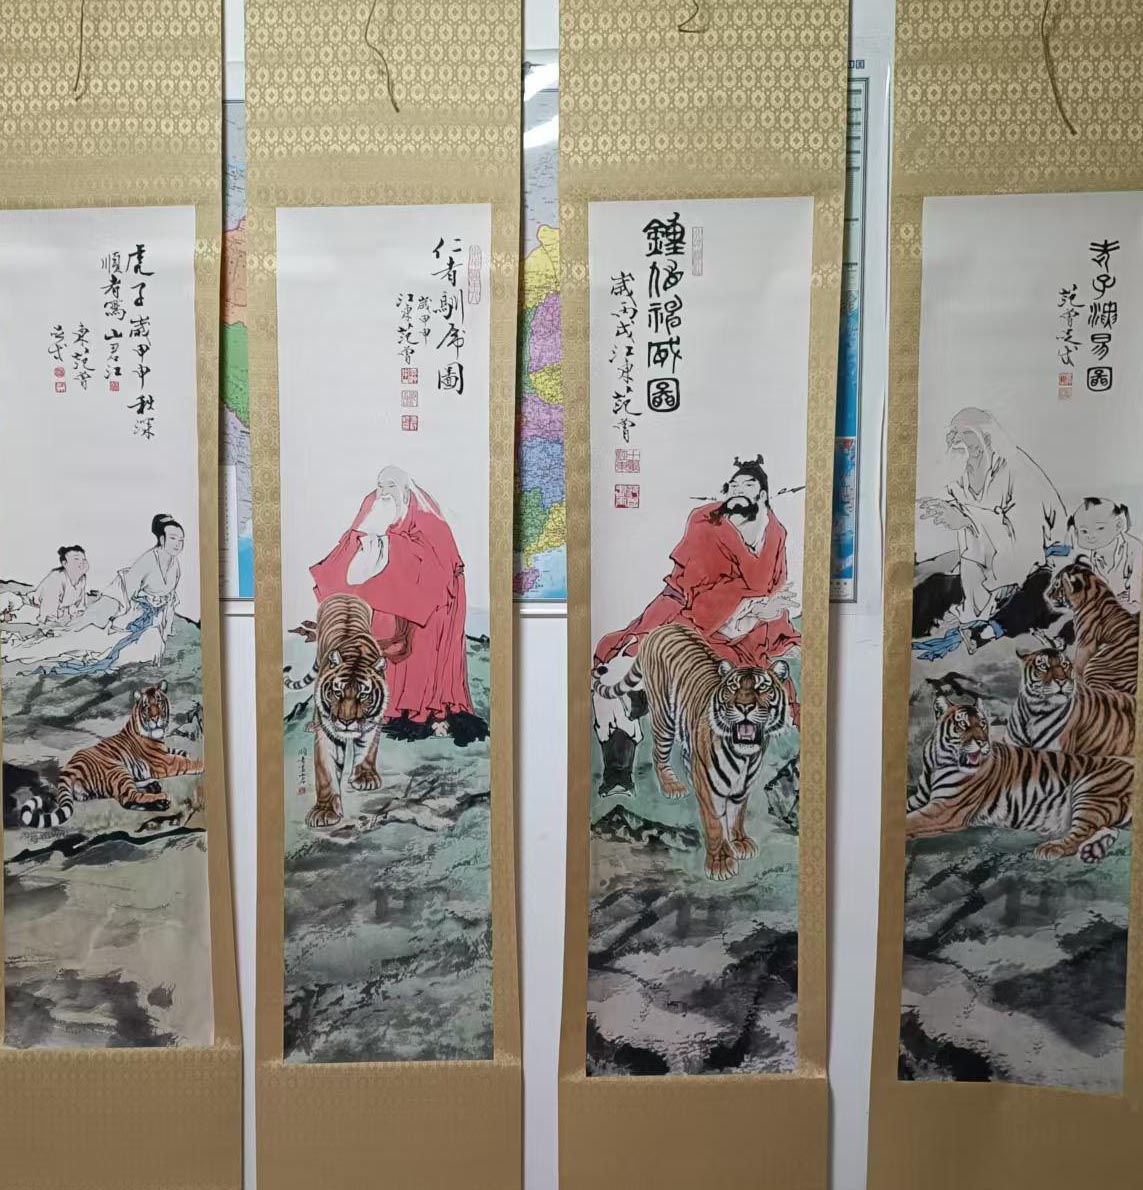 虎子歲甲申秋深
順者寫山君江
東范曾
仁者馴虎圖
歲甲申
江東范曾
鍾馗神威圖
歲丙戌江東范曾
老子演易圖
范曾